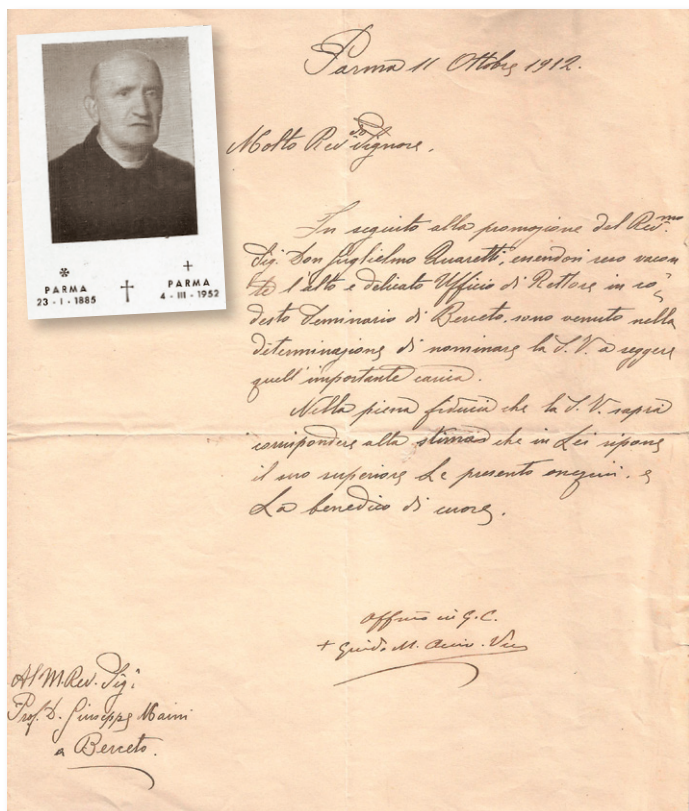 *
PARMA
23 - I - 1885
†
+
PARMA
4 - III - 1952
Parma 11 Ottobre 1912.
Molto Rev.do Signore,
In seguito alla promozione del Rev.mo
Sig. Don Guglielmo Quaretti, essendosi reso vacan
te l'alto e delicato Ufficio di Rettore in co-
desto Seminario di Berceto, sono venuto nella
determinazione di nominare la S. V. a reggere
quell'importante carica.
Nella piena fiducia che la S. V. saprà
corrispondere alla stima che in Lei ripone
il suo superiore Le presento ossequi. e
La benedico di cuore.
Aff.mo in G. C.
+ Guido M. Arciv. Vesc
Al M. Rev. Sig.
Prof. D. Giuseppe Maini
a Berceto.